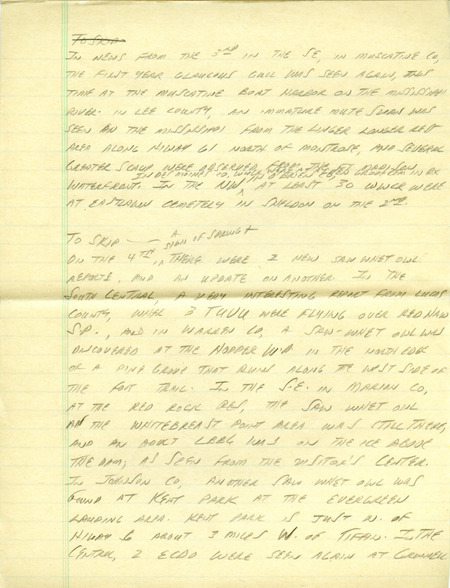 To Skip
In news from the 3rd in the SE, in Muscatine Co,
the first year Glaucous Gull was seen again, this
time at the Muscatine Boat Harbor on the Mississippi
River. In Lee County, an immature Mute Swan was
seen on the Mississippi from the Linger Longer Rest
Area along Hiway 61 north of Montrose, and several
Greater Scaup were observed from the Ft Madison
Waterfront. In the NW, at least 30 WWCR were
at Eastlawn Cemetery in Sheldon on the 2nd.
To Skip — A sign of Spring
On the 4th, there were 2 new Saw Whet Owl
reports, and an update on another. In the
South Central, a very interesting report from Lucas
County, where 3 TUVU were flying over Red Haw
S.P., and in Warren Co, a Saw-Whet Owl was
discovered at the Hopper W.A. in the north edge
of a pine grove that runs along the west side of
the foot trail. In the S.E. in Marion Co,
at the Red Rock Res, the Saw Whet Owl
in the Whitebreast Point Area was still there,
and an adult LBBG was on the ice above
the dam, as seen from the Visitor's Center.
In Johnson Co, another Saw Whet Owl was
found at Kent Park at the Evergreen
Landing Area. Kent Park is just N. of
Hiway 6 about 3 miles W. of Tiffin. In the
Central, 2 ECDO were seen again at Grinnell